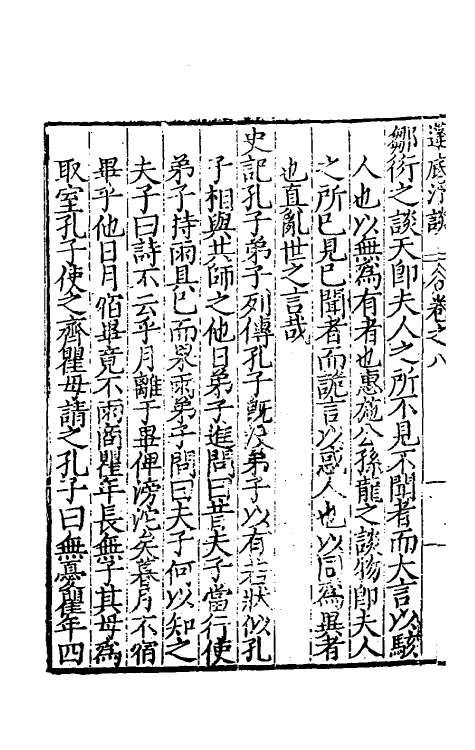 蓬底浮談　卷之八
鄒衍之談天即夫人之所不見不聞者而大言以駭
人也以無為有者也惠施公孫龍之談物即夫人
之所已見已聞者而詭言以惑人也以同為異者
也直亂世之言哉
史記孔子弟子列傳孔子既沒弟子以有若狀似孔
子相與共師之他日弟子進問曰昔夫子當行使
弟子持雨具已而果雨弟子問曰夫子何以知之
夫子曰詩不云乎月離于畢俾滂沱矣暮月不宿
畢乎他日月宿畢竟不雨商瞿年長無子其母為
取室孔子使之齊瞿母請之孔子曰無憂瞿年四